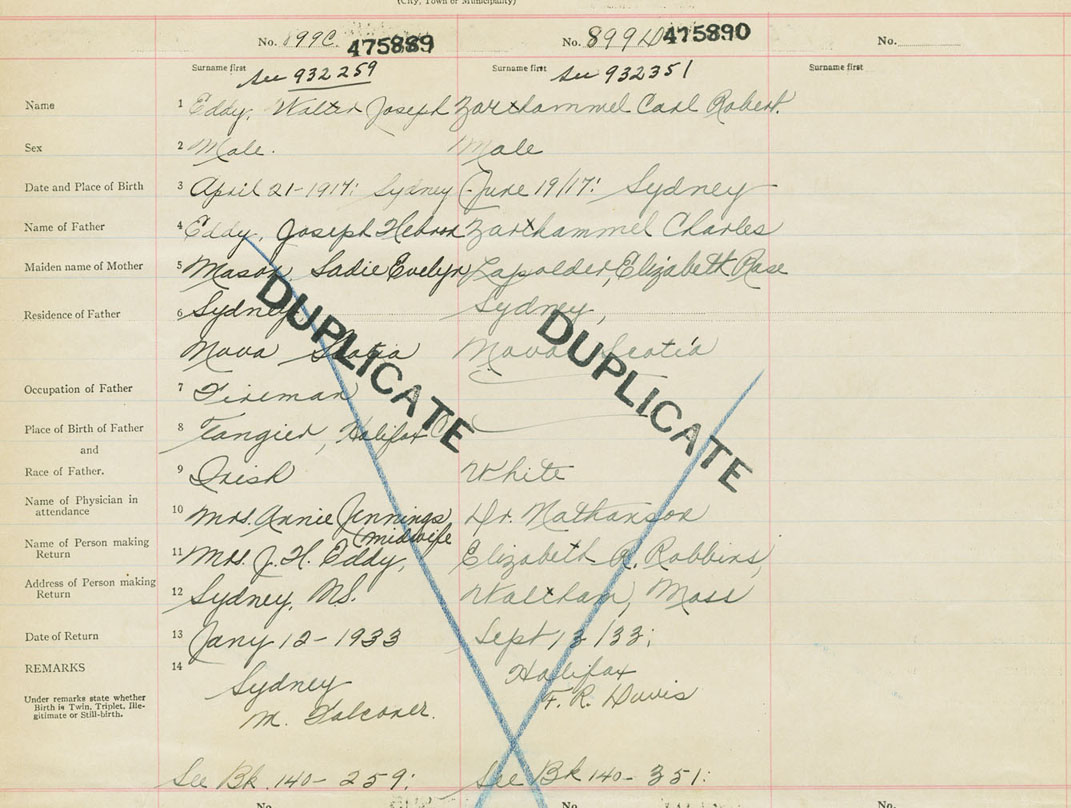 (City, Town or Municipality)
No. 899C 475889 No. 899D 475890 No.
Surname first Surname first Surname first
See 932259 See 932351
Name 1 Eddy, Walter Joseph Zarthammel Carl Robert.
Sex 2 Male. Male
Date and Place of Birth 3 April 21-1917: Sydney June 19/17: Sydney
Name of Father 4 Eddy, Joseph Hebron Zarthammel Charles
Maiden name of Mother 5 Mason, Sadie Evelyn Lapolder, Elizabeth Rose
Residence of Father 6 Sydney, Sydney,
Nova Scotia Nova Scotia
DUPLICATE DUPLICATE
Occupation of Father 7 Fireman
Place of Birth of Father 8 Tangier, Halifax Co
and
Race of Father. 9 Irish White
Name of Physician in attendance 10 Mrs. Annie Jennings Dr. Nathanson
(midwife
Name of Person making Return 11 Mrs. J. H. Eddy, Elizabeth R. Robbins,
Address of Person making Return 12 Sydney, N.S. Waltham, Mass
Date of Return 13 Jany 12-1933 Sept 13/33;
REMARKS 14 Sydney Halifax
Under remarks state whether Birth is Twin, Triplet, Ille-
gitimate or Still-birth. M. Falconer. F. R. Davis
See Bk. 140- 259: See Bk 140- 351:
No. No. No.